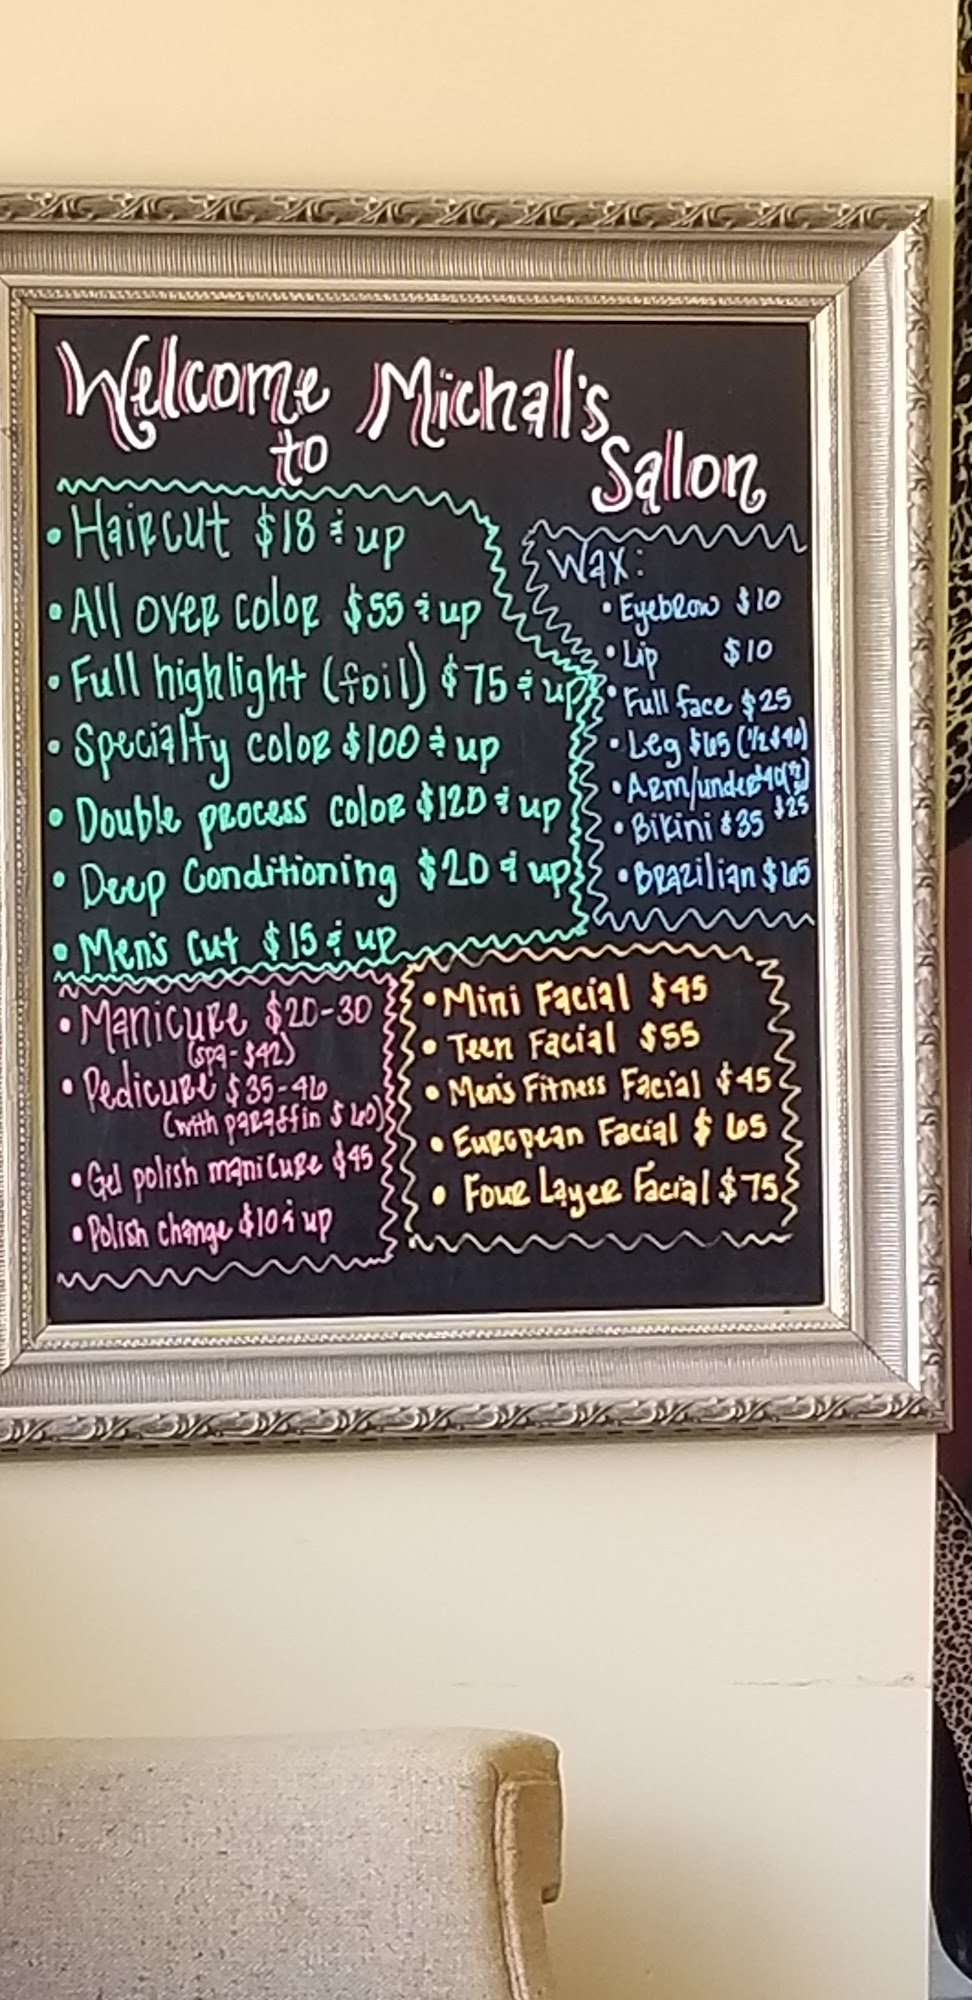 Welcome to Michal's Salon
• Haircut $18 & up
• All over color $55 & up
• Full highlight (foil) $75 & up
• Specialty color $100 & up
• Double process color $120 & up
• Deep Conditioning $20 & up
• Men's Cut $15 & up
Wax:
• Eyebrow $10
• Lip $10
• Full face $25
• Leg $65 (1/2 $40)
• Arm/under $40 (1/2)
$25
• Bikini $35
• Brazilian $65
• Manicure $20-30
(spa-$42)
• Pedicure $35-46
(with paraffin $60)
• Gel polish manicure $45
• Polish change $10 & up
• Mini Facial $45
• Teen Facial $55
• Men's Fitness Facial $45
• European Facial $65
• Four Layer Facial $75